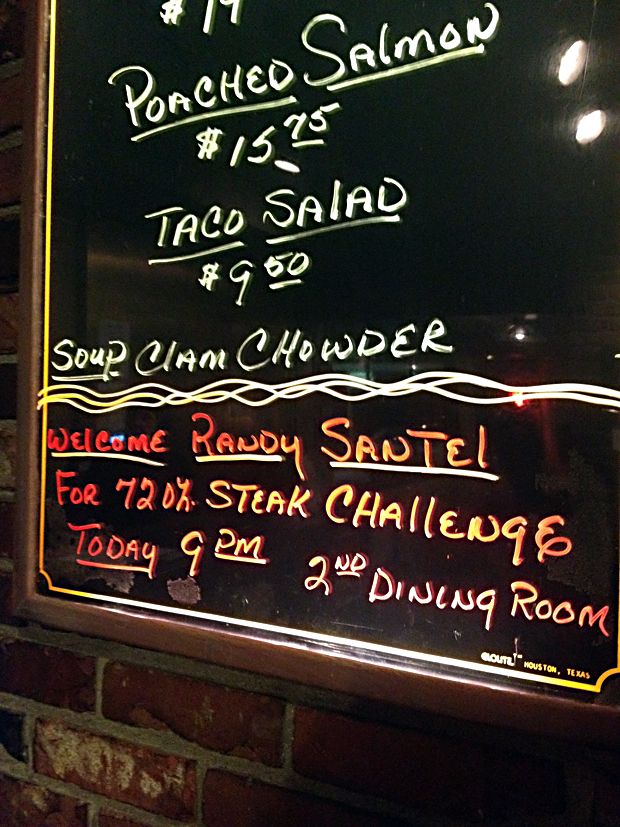 $19
Poached Salmon
$15.75
Taco Salad
$9 50
Soup Clam Chowder
Welcome Randy Santel
For 72 oz. Steak Challenge
Today 9 PM
2ND Dining Room
HOUSTON, TEXAS